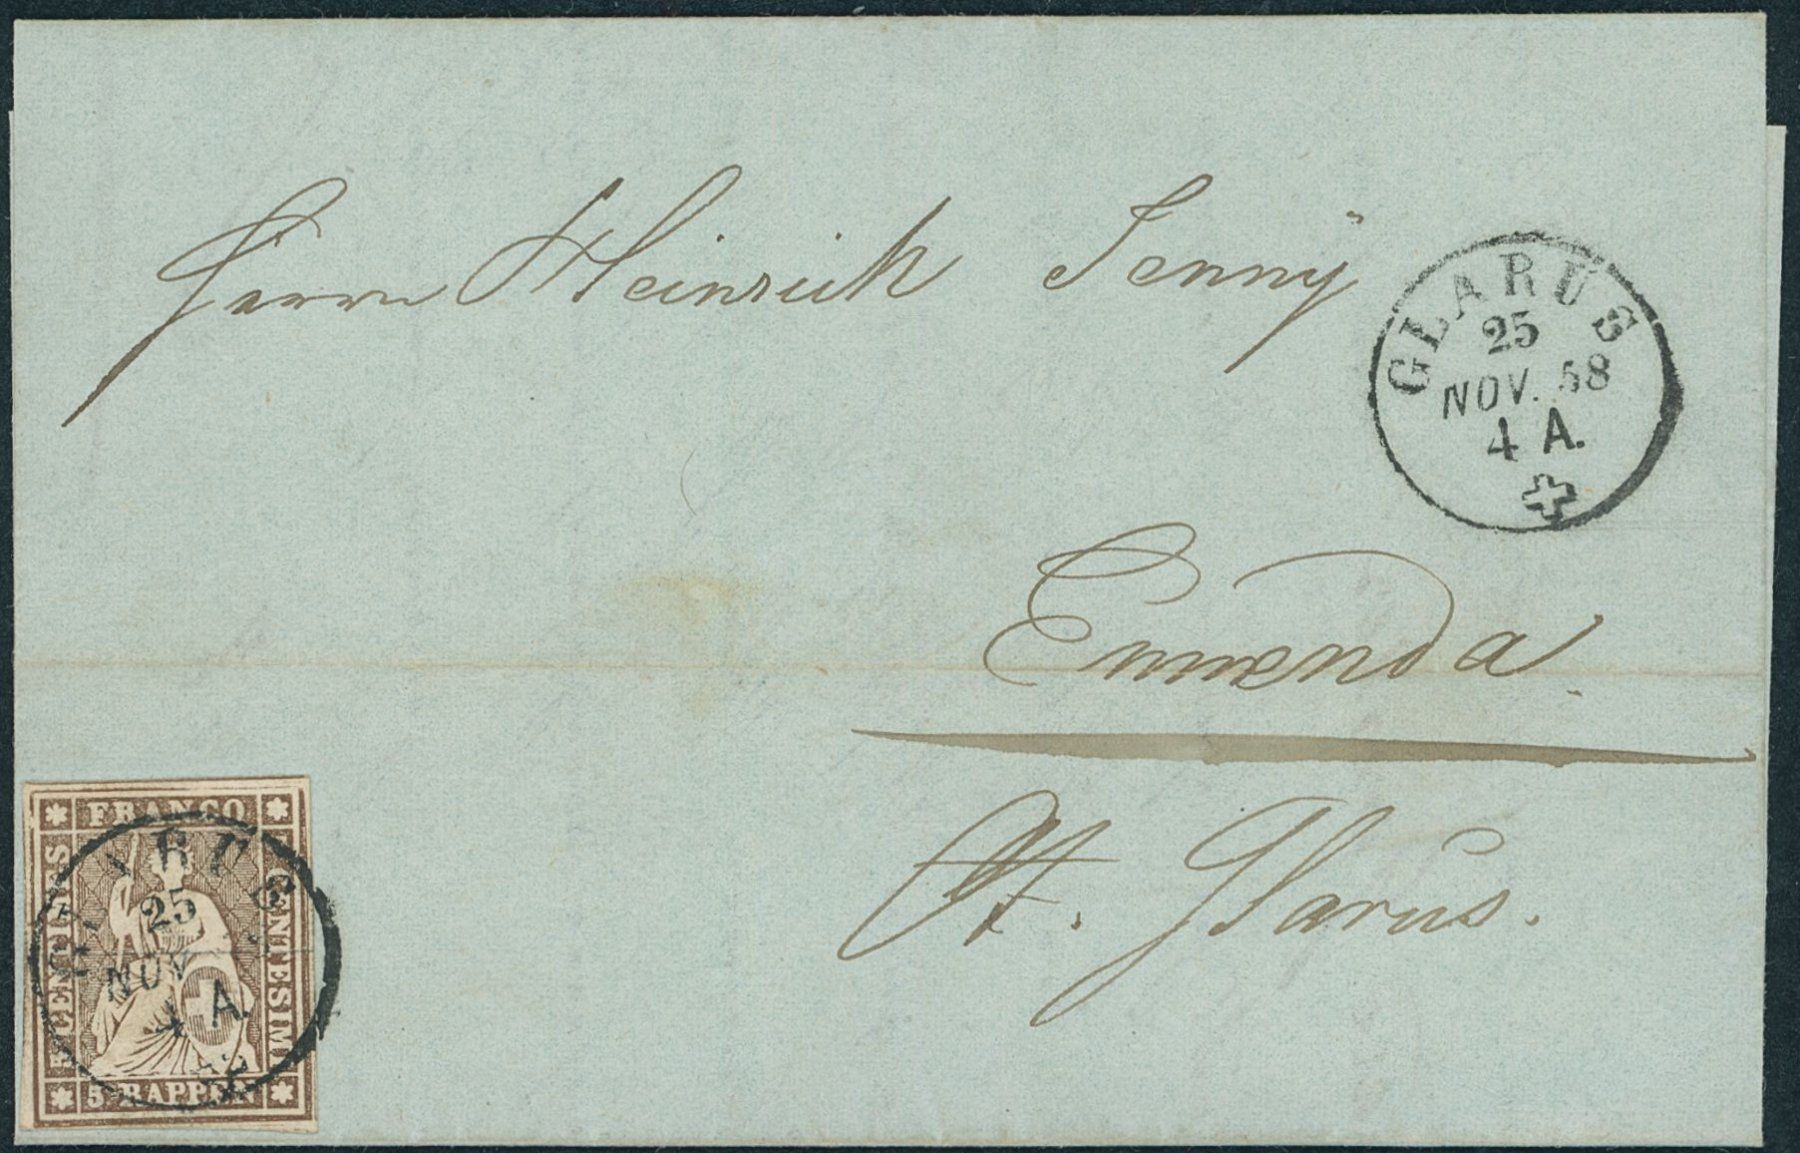 Herrn Heinrich Jenny
GLARUS
25
NOV. 58
4 A.
Ennenda
Kt. Glarus.
FRANCO
5 CENTIMES
CENTESIMI
5 RAPPEN
GLARUS
25
NOV
4 A.